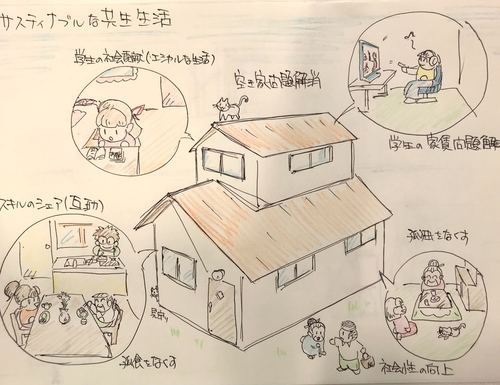 サスティナブルな共生生活
学生の社会貢献(エシカルな生活)
空き家問題解消
学生の家賃問題解
スキルのシェア(互助)
孤独をなくす
見守り
孤食をなくす
社会性の向上